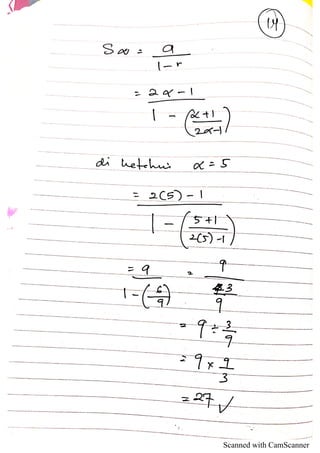 14
S∞ = a
1-r
= 2x-1
1 - (x+1
2x-1)
di ketahui x = 5
= 2(5) - 1
1 - (5+1
2(5)-1)
= 9 = 9
1-(6 3
9) 9
= 9 ÷ 3
9
= 9 x 9
3
= 27 ✓
Scanned with CamScanner